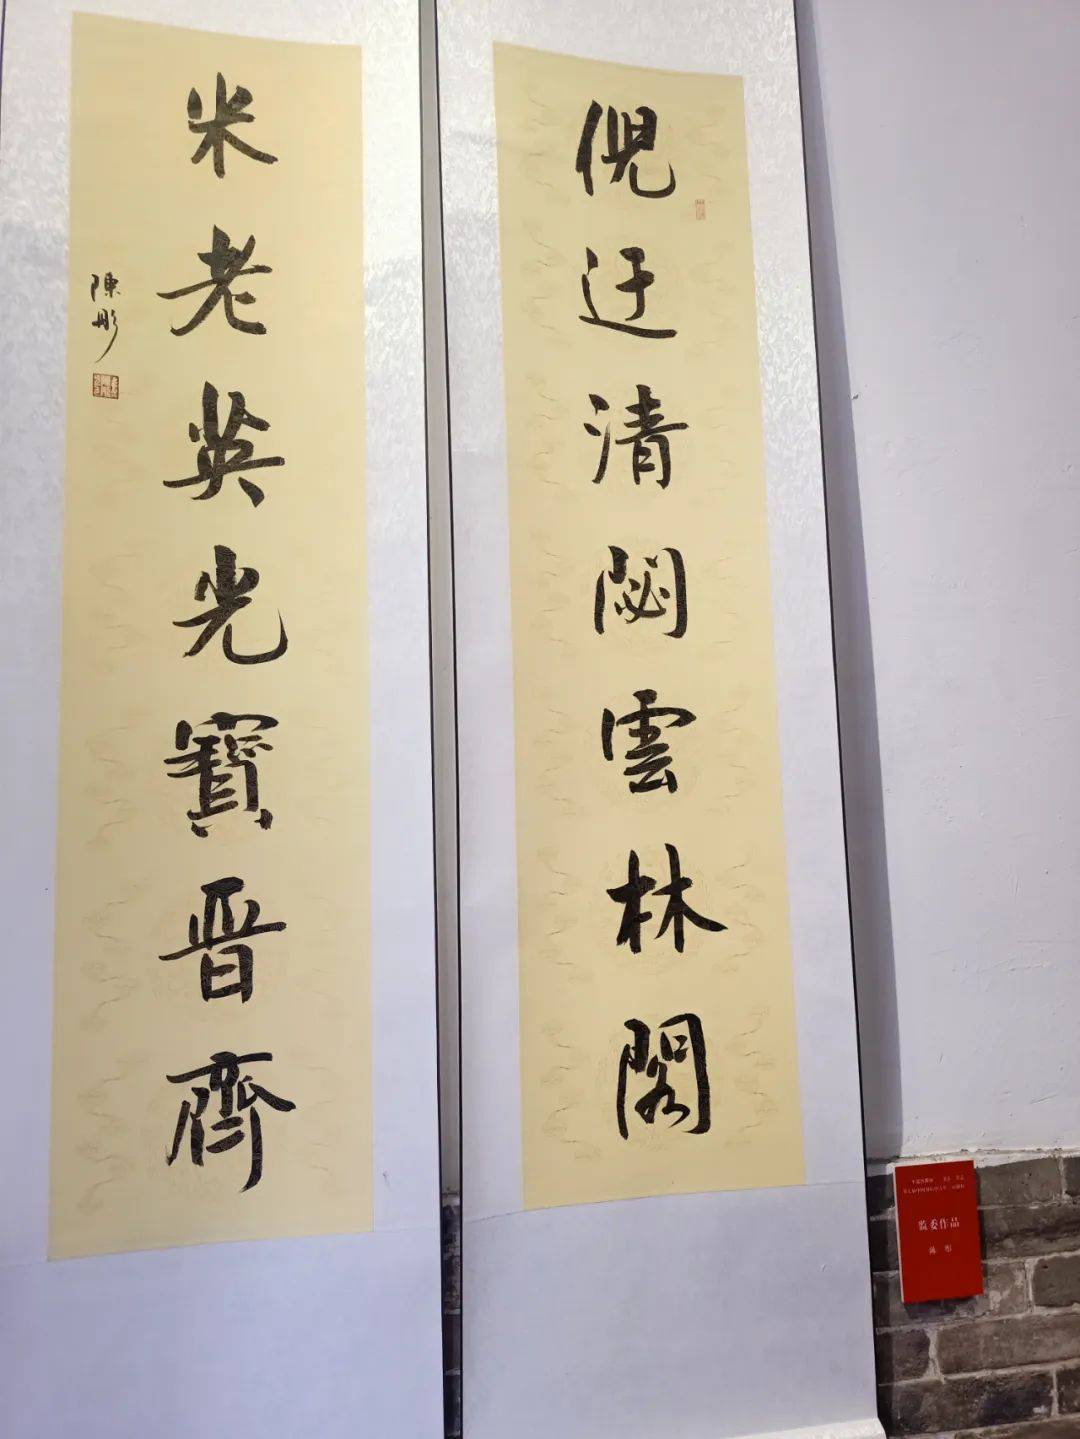 倪迂清閟雲林閣
米老英光寶晋齊
陳彤
监委作品
陈 彤